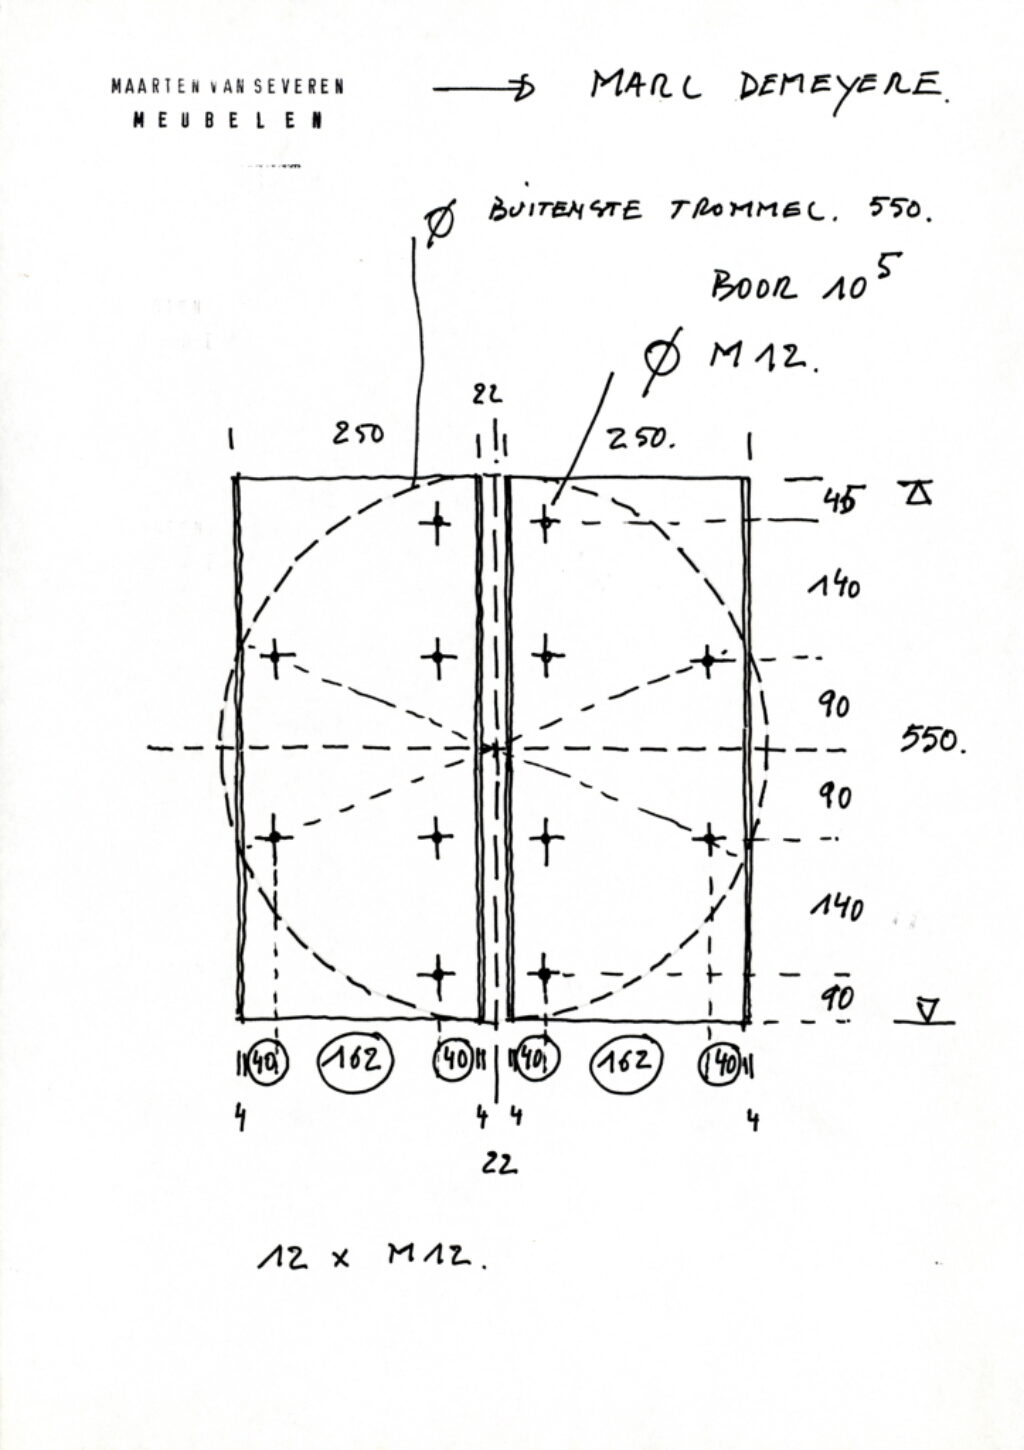 MAARTEN VAN SEVEREN
MEUBELEN
MARC DEMEYERE.
Ø BUITENSTE TROMMEL. 550.
BOOR 10⁵
Ø M12.
22
250
250.
45
140
90
550.
90
140
90
40 162 40 40 162 40
4 4 4 4
22
12 x M12.